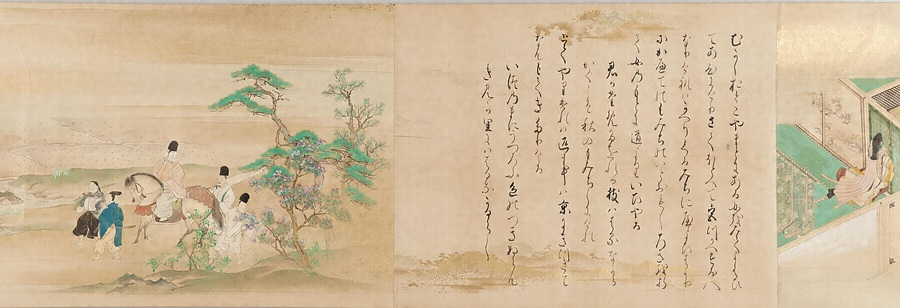 むかしおとこやまとにある女を見てよばひ
てあひにけりさてほとへて宮つかへする人
なりけれはかへりくるみちにやよひはかり
にかえてのもみちのいとおもしろきを折
て女のもとに道よりいひやる
君かためたおれる枝は春なから
かくこそ秋のもみちしにけれ
とてやりたりけれは返事は京にきつきて
なんもてきたりける
いつのまにうつろふ色のつきぬらん
きみか里にははるなかるらし